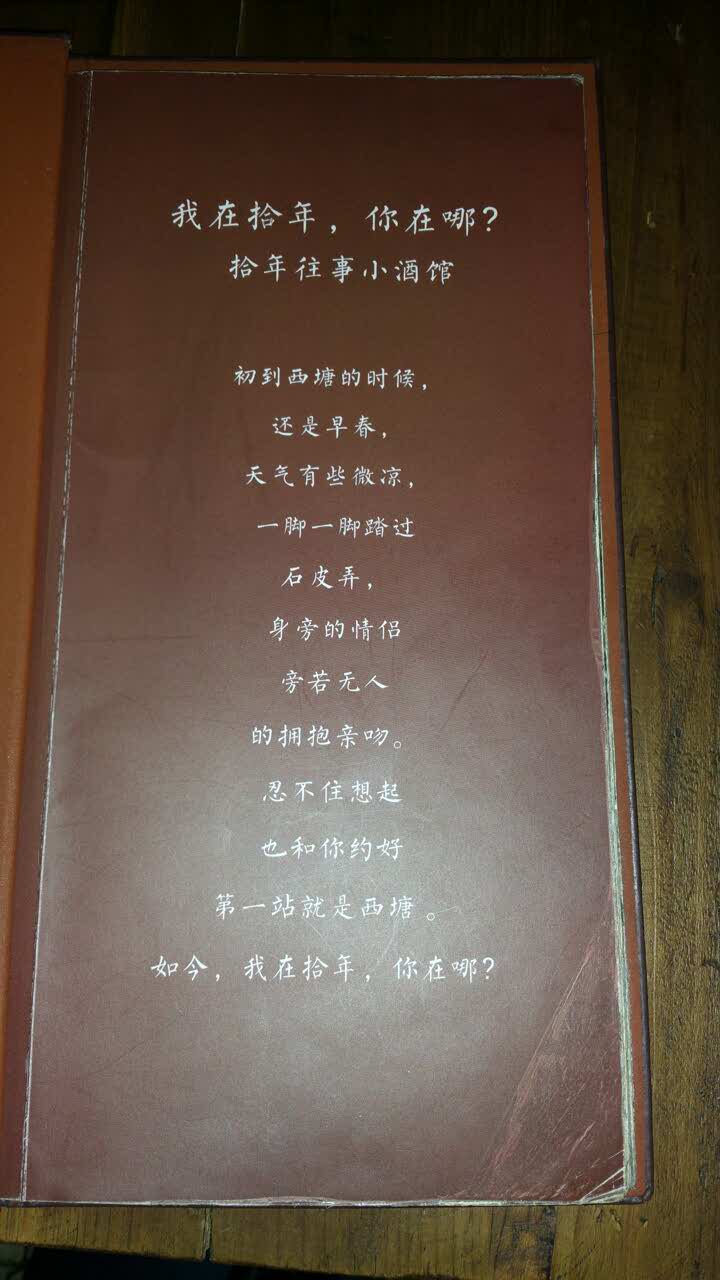 我在拾年，你在哪?
拾年往事小酒馆
初到西塘的时候，
还是早春，
天气有些微凉，
一脚一脚踏过
石皮弄，
身旁的情侣
旁若无人
的拥抱亲吻。
忍不住想起
也和你约好
第一站就是西塘。
如今，我在拾年，你在哪?